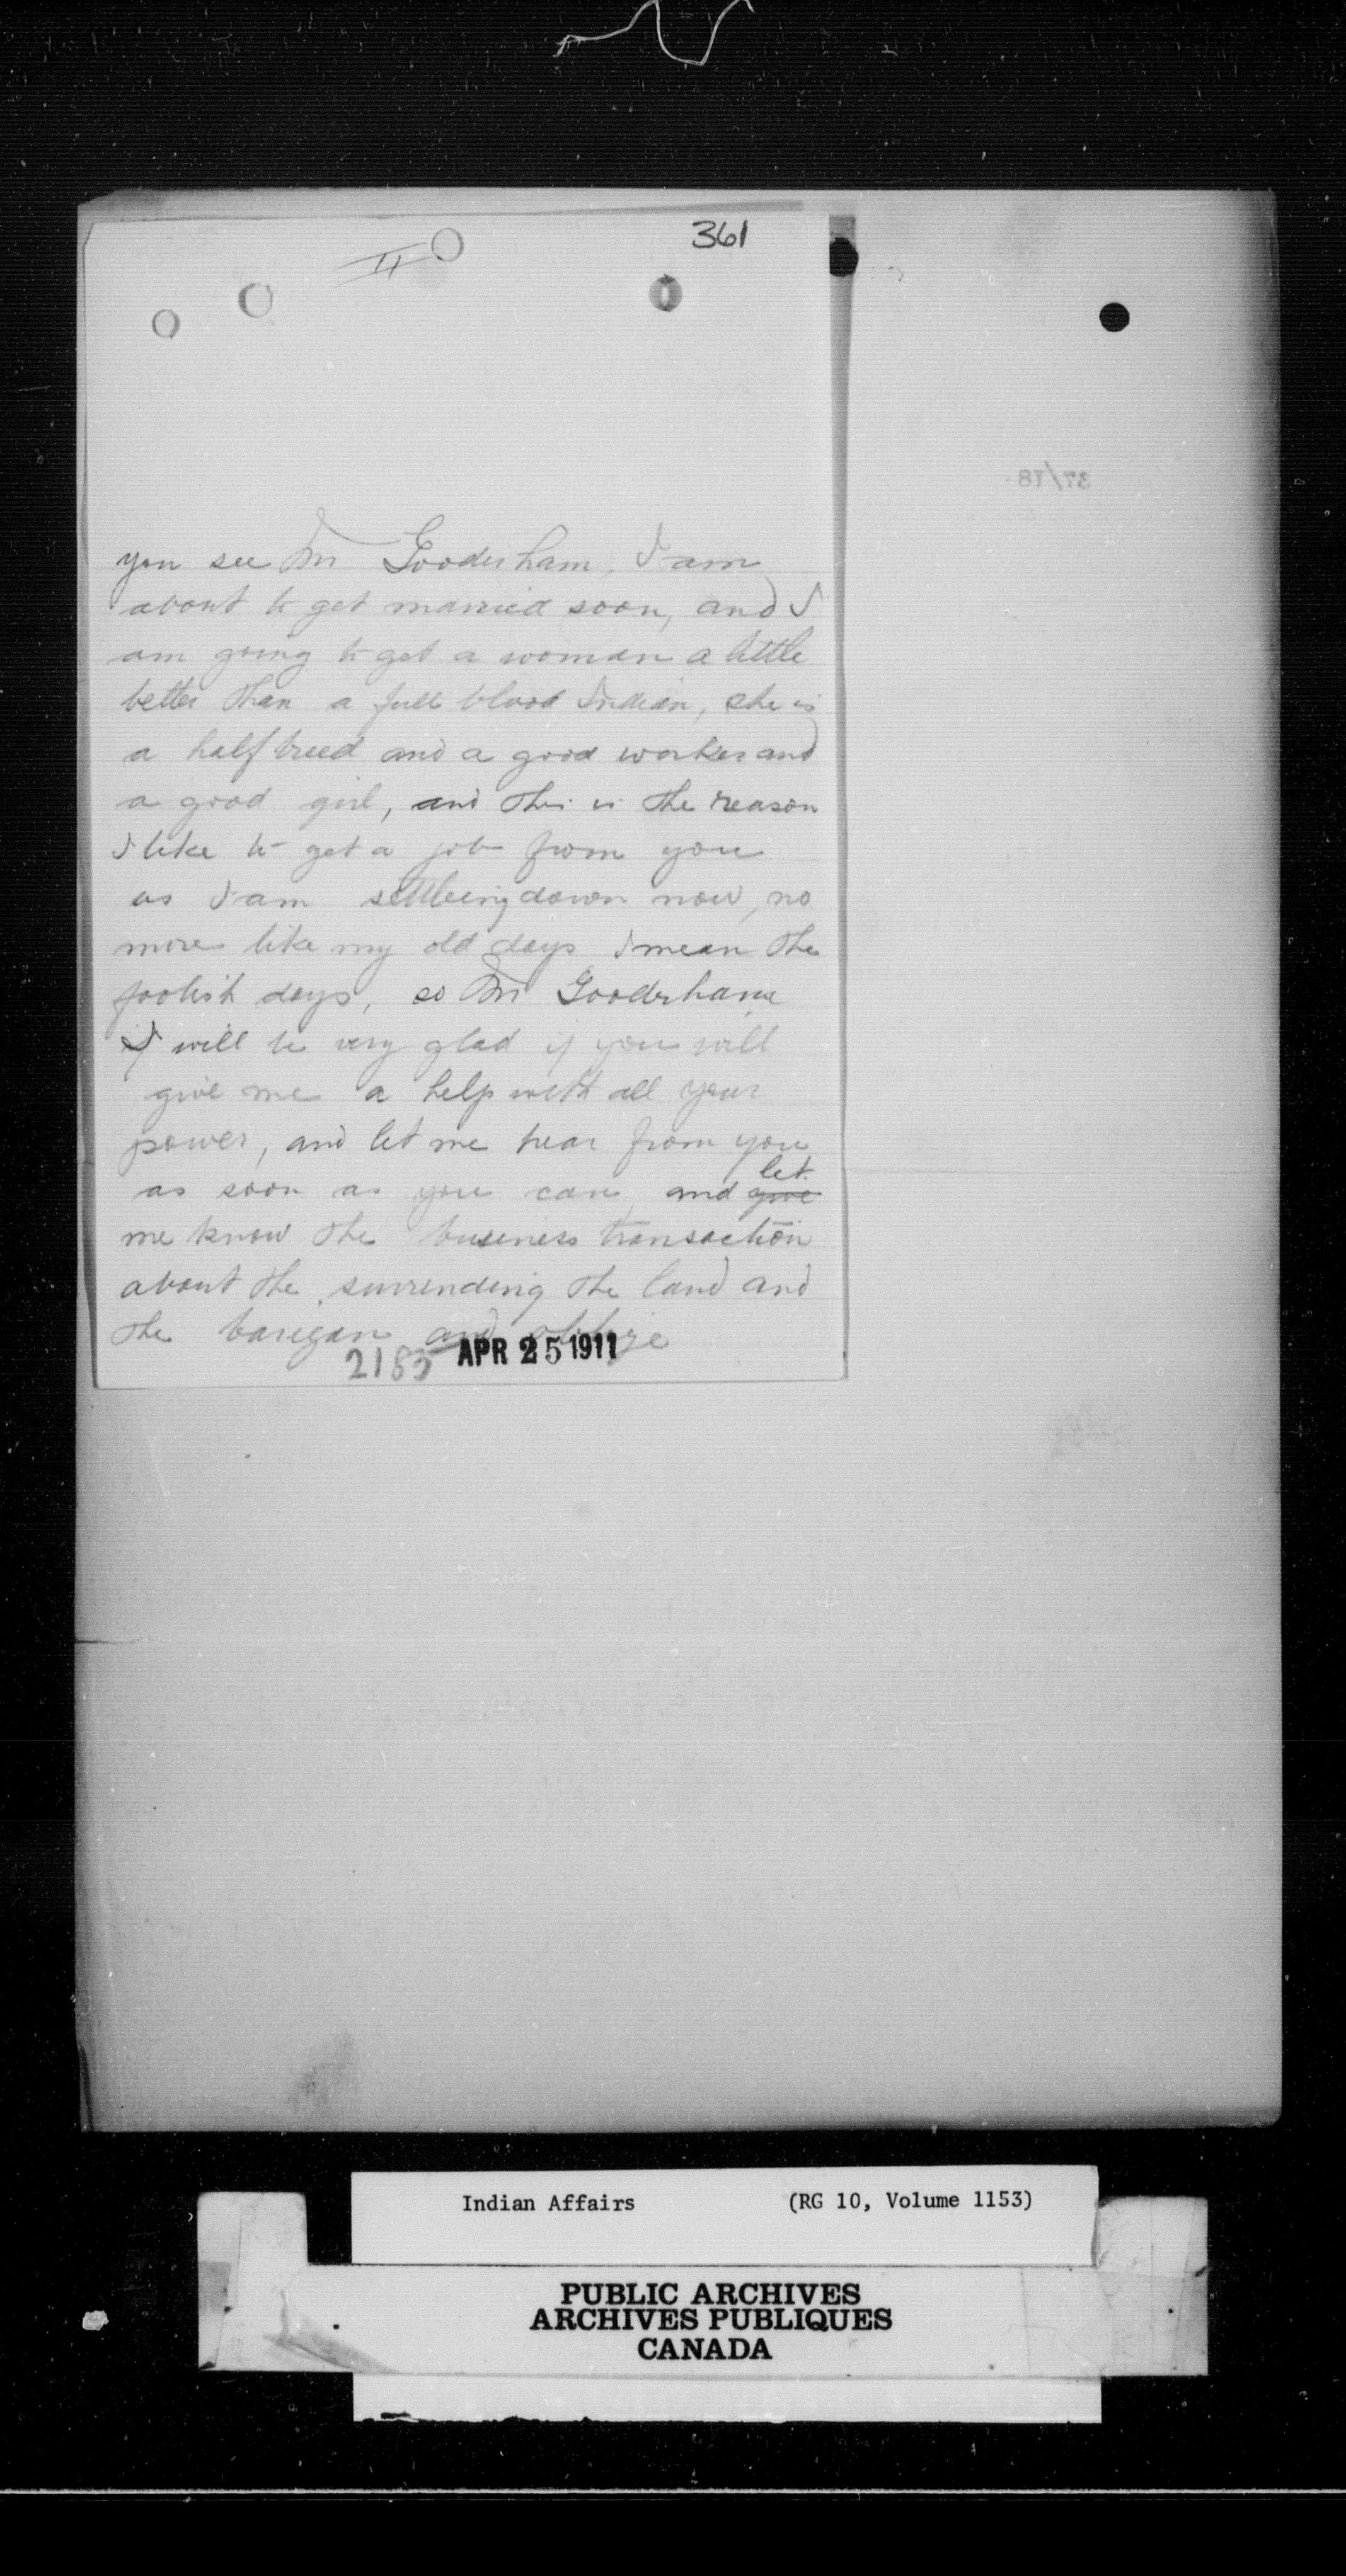 361
II
37/18
you see Mr Gooderham, I am
about to get married soon, and I
am going to get a woman a little
better than a full blood Indian, she is
a half breed and a good worker and
a good girl, and this is the reason
I like to get a job from you
as I am settleing down now, no
more like my old days I mean the
foolish days, so Mr Gooderham
I will be very glad if you will
give me a help with all your
power, and let me hear from you
as soon as you can, and give let
me know the business transaction
about the surrending the land and
the baregan and oblige
2185 APR 25 1911
Indian Affairs (RG 10, Volume 1153)
PUBLIC ARCHIVES
ARCHIVES PUBLIQUES
CANADA